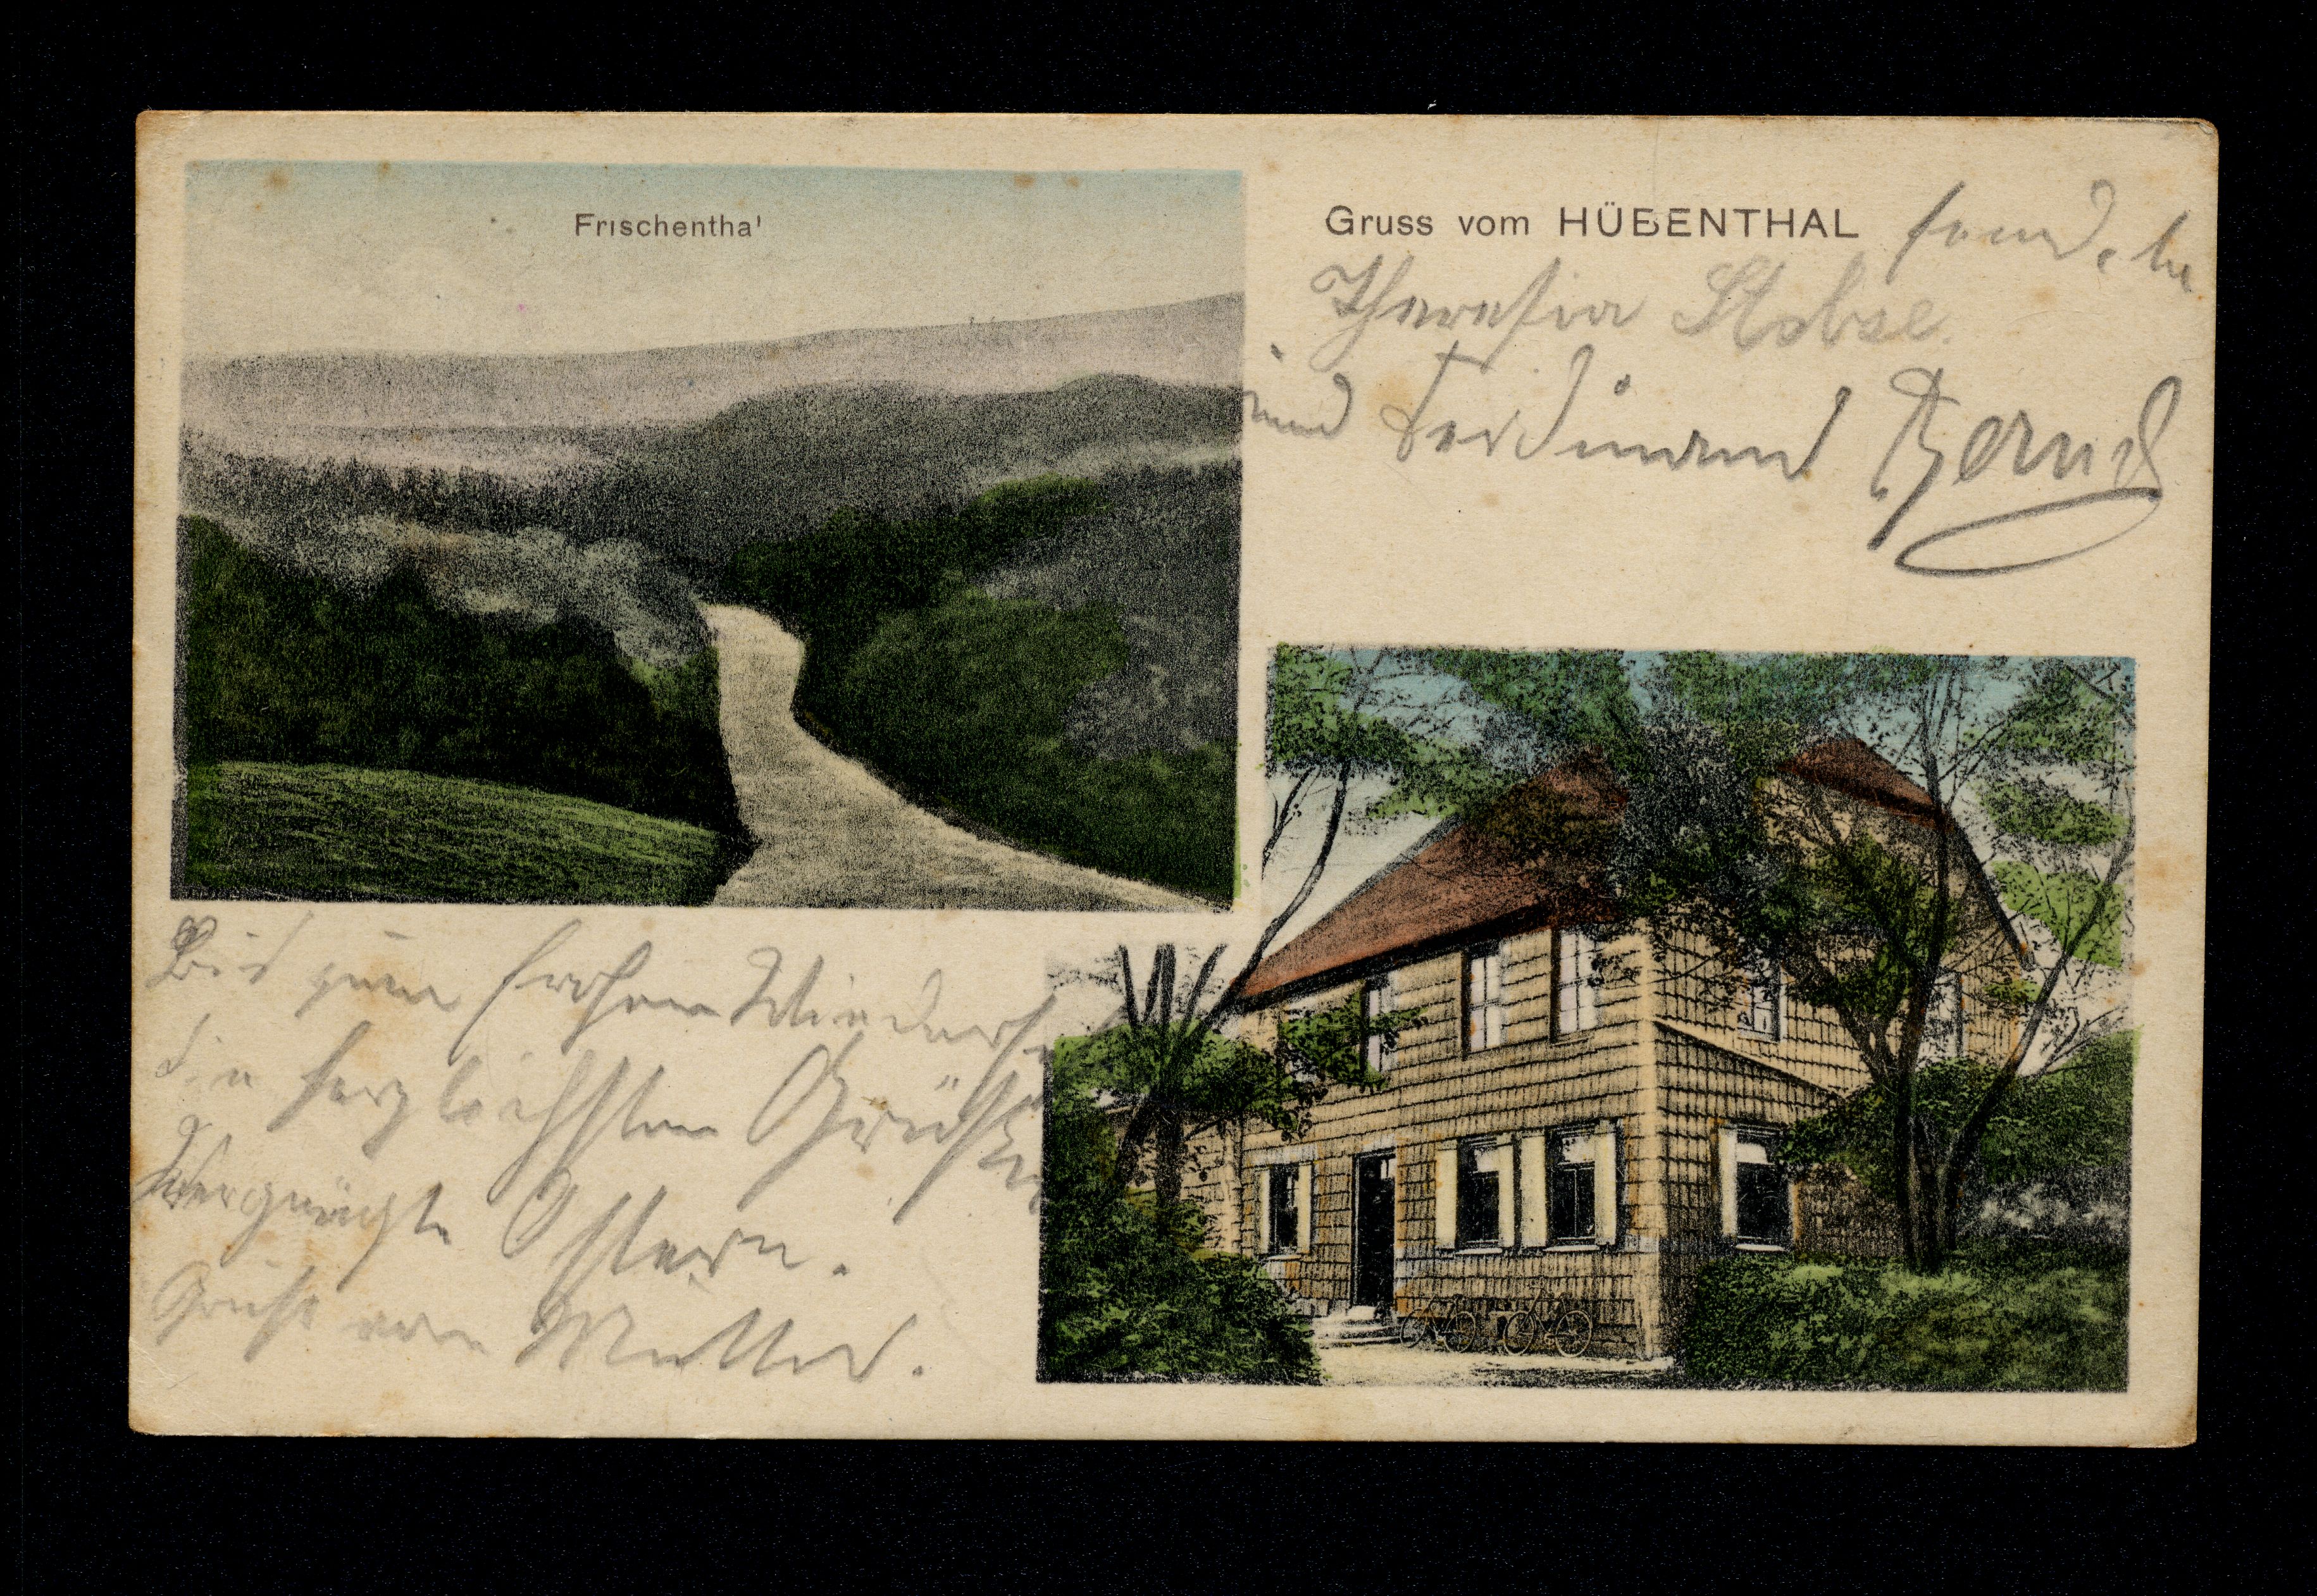 Frischenthal
Gruss vom HÜBENTHAL
Theresia Stobse.
und Ferdinand Bernd
Bis zum frohen Wiederseh
die herzlichsten Grüße
Vergnügte Ostern.
Grüße von Mutter.